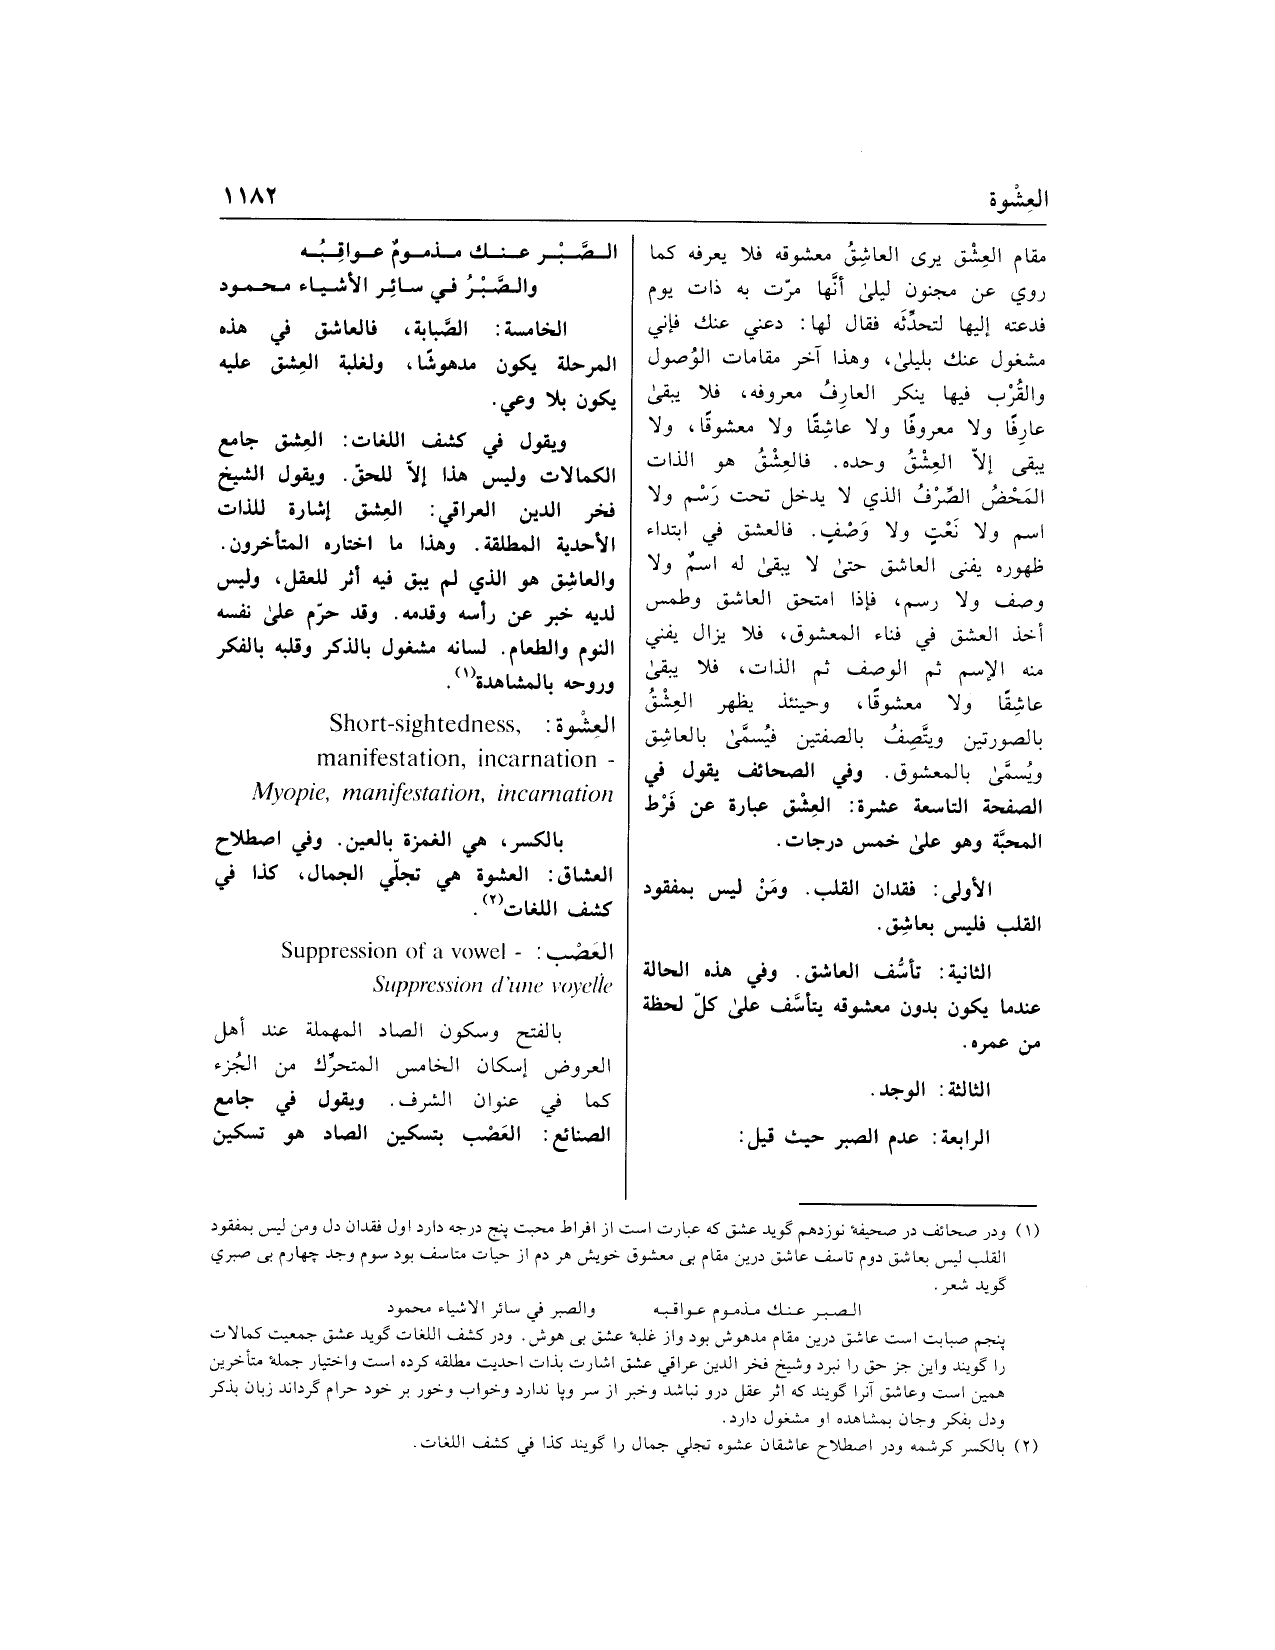 العِشْوة
١١٨٢
مقام العِشْق يرى العاشِقُ معشوقه فلا يعرفه كما
روي عن مجنون ليلىٰ أنَّها مرّت به ذات يوم
فدعته إليها لتحدِّثَه فقال لها: دعني عنك فإني
مشغول عنك بليلىٰ، وهذا آخر مقامات الوُصول
والقُرْب فيها ينكر العارِفُ معروفه، فلا يبقىٰ
عارِفًا ولا معروفًا ولا عاشِقًا ولا معشوقًا، ولا
يبقى إلاّ العِشْقُ وحده. فالعِشْقُ هو الذات
المَحْضُ الصِّرْفُ الذي لا يدخل تحت رَسْم ولا
اسم ولا نَعْتٍ ولا وَصْفٍ. فالعشق في ابتداء
ظهوره يفنى العاشق حتىٰ لا يبقىٰ له اسمٌ ولا
وصف ولا رسم، فإذا امتحق العاشق وطمس
أخذ العشق في فناء المعشوق، فلا يزال يفني
منه الإسم ثم الوصف ثم الذات، فلا يبقىٰ
عاشِقًا ولا معشوقًا، وحينئذ يظهر العِشْقُ
بالصورتين ويتَّصِفُ بالصفتين فيُسمَّىٰ بالعاشِق
ويُسمَّىٰ بالمعشوق. وفي الصحائف يقول في
الصفحة التاسعة عشرة: العِشْق عبارة عن فَرْط
المحبَّة وهو علىٰ خمس درجات.
الأولى: فقدان القلب. ومَنْ ليس بمفقود
القلب فليس بعاشِق.
الثانية: تأسُّف العاشق. وفي هذه الحالة
عندما يكون بدون معشوقه يتأسَّف علىٰ كلّ لحظة
من عمره.
الثالثة: الوجد.
الرابعة: عدم الصبر حيث قيل:
الصَّبْر عنك مذمومٌ عواقِبُه
والصَّبْرُ في سائِر الأشياء محمود
الخامسة: الصَّبابة، فالعاشق في هذه
المرحلة يكون مدهوشًا، ولغلبة العِشق عليه
يكون بلا وعي.
ويقول في كشف اللغات: العِشق جامع
الكمالات وليس هذا إلاّ للحقّ. ويقول الشيخ
فخر الدين العراقي: العِشق إشارة للذات
الأحدية المطلقة. وهذا ما اختاره المتأخرون.
والعاشِق هو الذي لم يبق فيه أثر للعقل، وليس
لديه خبر عن رأسه وقدمه. وقد حرّم علىٰ نفسه
النوم والطعام. لسانه مشغول بالذكر وقلبه بالفكر
وروحه بالمشاهدة(١).
العِشْوة: Short-sightedness,
manifestation, incarnation -
Myopie, manifestation, incarnation
بالكسر، هي الغمزة بالعين. وفي اصطلاح
العشاق: العشوة هي تجلّي الجمال، كذا في
كشف اللغات(٢).
العَصْب: Suppression of a vowel -
Suppression d'une voyelle
بالفتح وسكون الصاد المهملة عند أهل
العروض إسكان الخامس المتحرِّك من الجُزء
كما في عنوان الشرف. ويقول في جامع
الصنائع: العَصْب بتسكين الصاد هو تسكين
(١) ودر صحائف در صحيفهٔ نوزدهم گويد عشق كه عبارت است از افراط محبت پنج درجه دارد اول فقدان دل ومن ليس بمفقود
القلب ليس بعاشق دوم تاسف عاشق درين مقام بى معشوق خويش هر دم از حيات متاسف بود سوم وجد چهارم بى صبري
گويد شعر.
الصبر عنك مذموم عواقبه والصبر في سائر الاشياء محمود
پنجم صبابت است عاشق درين مقام مدهوش بود واز غلبهٔ عشق بى هوش. ودر كشف اللغات گويد عشق جمعيت كمالات
را گويند واين جز حق را نبرد وشيخ فخر الدين عراقي عشق اشارت بذات احديت مطلقه كرده است واختيار جملهٔ متأخرين
همين است وعاشق آنرا گويند كه اثر عقل درو نباشد وخبر از سر وپا ندارد وخواب وخور بر خود حرام گرداند زبان بذكر
ودل بفكر وجان بمشاهده او مشغول دارد.
(٢) بالكسر كرشمه ودر اصطلاح عاشقان عشوه تجلي جمال را گويند كذا في كشف اللغات.